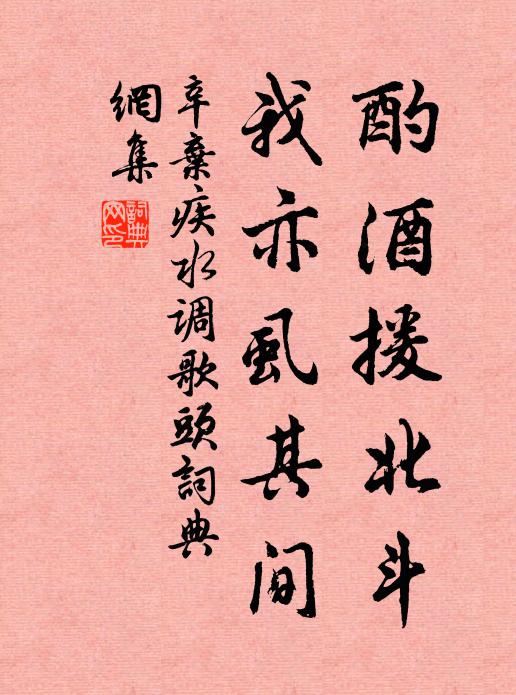 酌酒援北斗
我亦虱其间
辛棄疾水调歌頭詞典
網集
詞典
网印